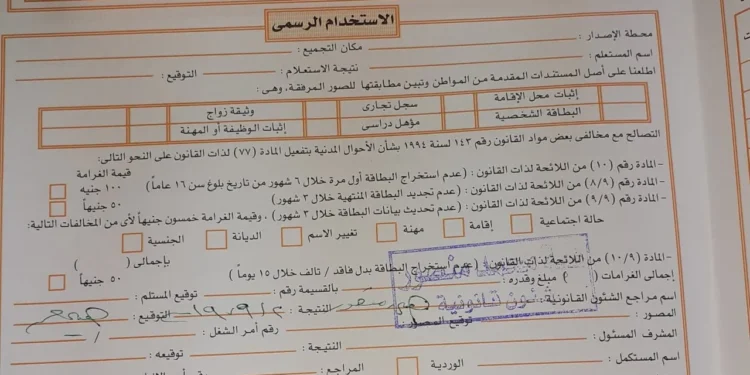 الاستخدام الرسمى
محطة الإصدار : مكان التجميع :
اسم المستعلم : نتيجة الاستعلام : التوقيع :
اطلعنا على أصل المستندات المقدمة من المواطن وتبين مطابقتها للصور المرفقة، وهى :
إثبات محل الإقامة سجل تجارى وثيقة زواج
البطاقة الشخصية مؤهل دراسى إثبات الوظيفة أو المهنة
التصالح مع مخالفى بعض مواد القانون رقم ١٤٣ لسنة ١٩٩٤ بشأن الأحوال المدنية بتفعيل المادة (٧٧) لذات القانون على النحو التالى:
قيمة الغرامة
-المادة رقم (١٠) من اللائحة لذات القانون : (عدم استخراج البطاقة أول مرة خلال ٦ شهور من تاريخ بلوغ سن ١٦ عاماً) ١٠٠ جنيه
-المادة رقم (٨/٩) من اللائحة لذات القانون : (عدم تجديد البطاقة المنتهية خلال ٣ شهور) ٥٠ جنيهاً
-المادة رقم (٩/٩) من اللائحة لذات القانون : (عدم تحديث بيانات البطاقة خلال ٣ شهور) ، وقيمة الغرامة خمسون جنيهاً لأى من المخالفات التالية:
حالة اجتماعية إقامة مهنة تغيير الاسم الديانة الجنسية
بإجمالى ( )
-المادة رقم (١٠/٩) من اللائحة لذات القانون : (عدم استخراج البطاقة بدل فاقد / تالف خلال ١٥ يوماً) ٥٠ جنيهاً
إجمالى الغرامات ( ) مبلغ وقدره : بالقسيمة رقم : توقيع المستلم :
اسم مراجع الشئون القانونية : النتيجة : التوقيع :
شئون قانونية
المصور : توقيع المصور رقم أمر الشغل :
المشرف المسئول : النتيجة : توقيعه :
اسم المستكمل : الوردية : المراجع :